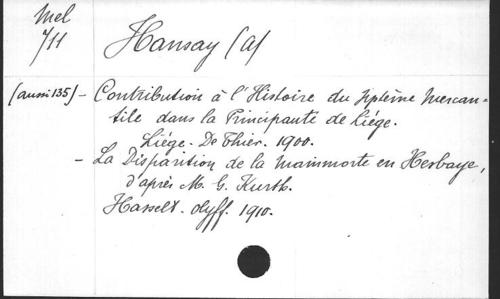 Mel
711
Hansay (a)
(aussi 135) - Contribution à l'Histoire du système mercan-
tile dans la Principauté de Liége.
Liége. De Thier. 1900.
- La Disparition de la mainmorte en Hesbaye,
d'après M. G. Kurth.
Hasselt. 1910.